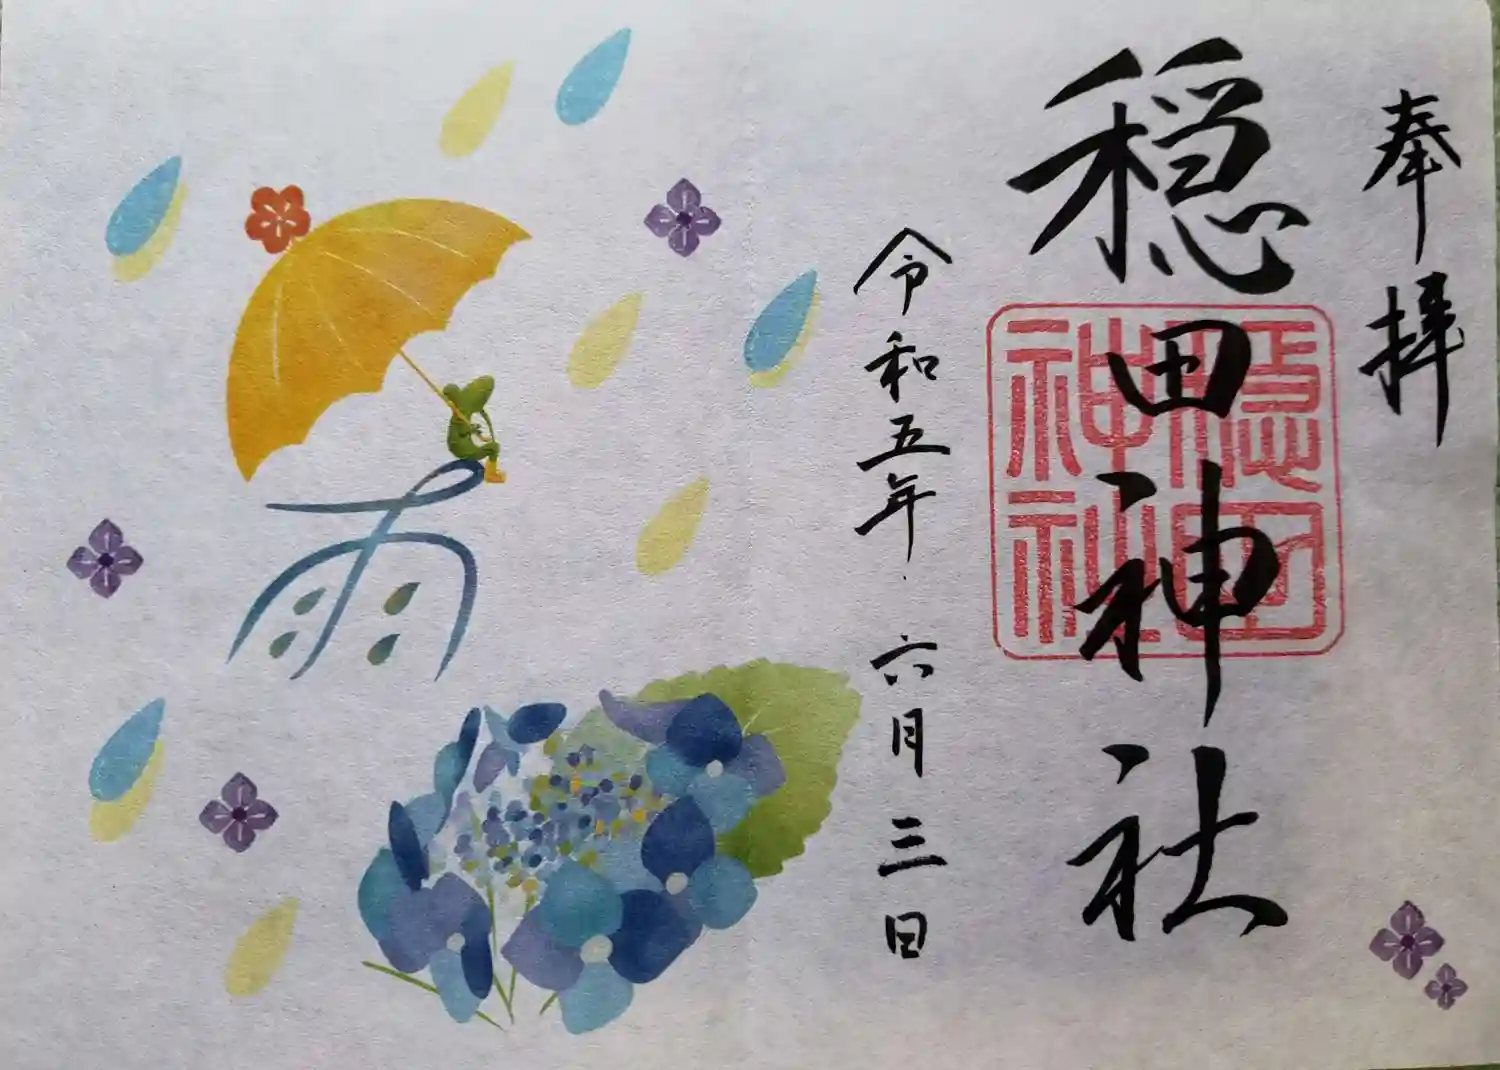 奉拝
穏田神社
穏田
神社
令和五年 六月三日
雨